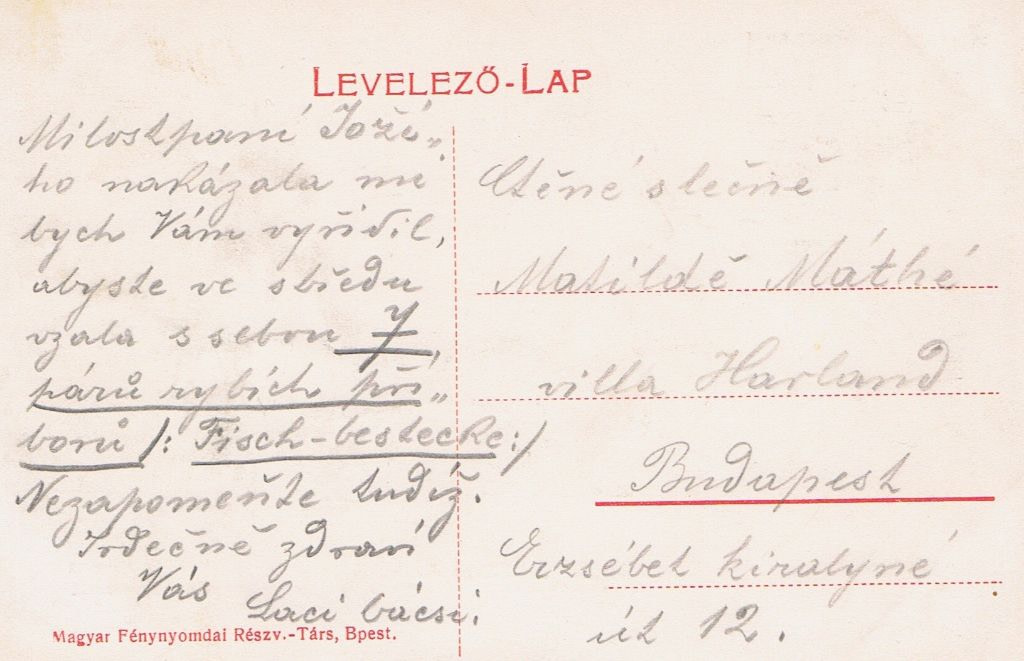 LEVELEZŐ-LAP
Milostpaní Joži„
ho nakázala mi
bych Vám vyřídil,
abyste ve středu
vzala s sebou 7
párů rybích pří„
borů /: Fisch-bestecke :/
Nezapomeňte tudíž.
Srdečně zdraví
Vás
Laci bácsi.
Magyar Fénynyomdai Részv.-Társ, Bpest.
Ctěné slečně
Matildě Máthé
villa Harland
Budapest
Erzsébet királyné
út 12.